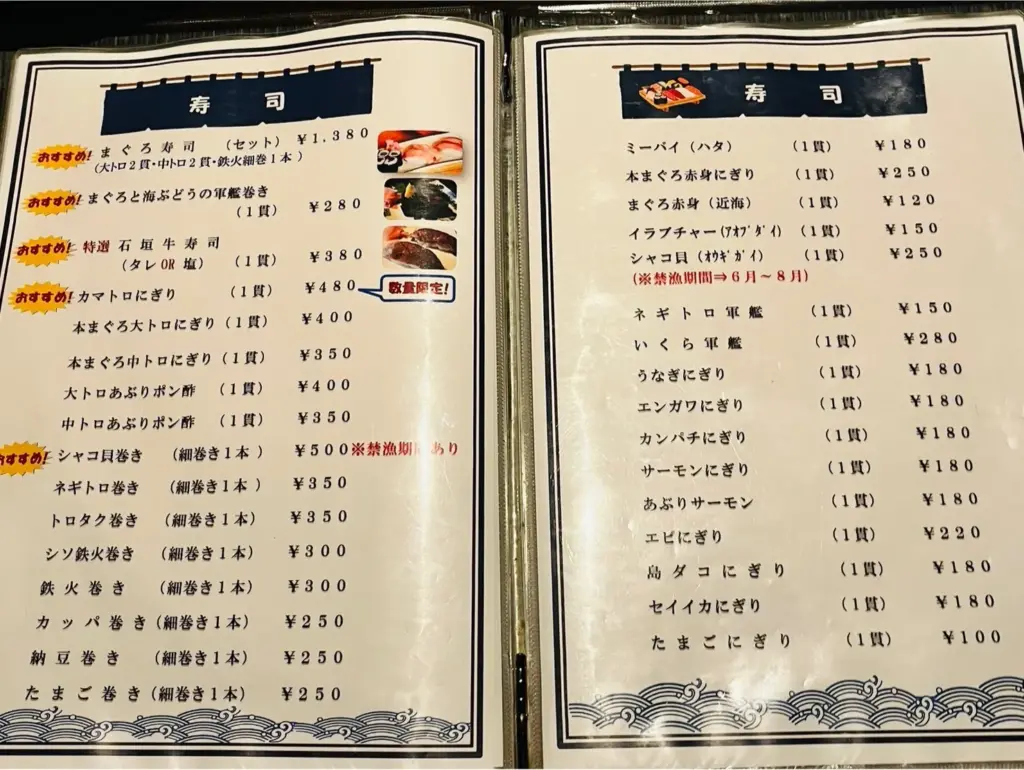 寿司
おすすめ! まぐろ寿司 (セット) ¥1,380
(大トロ2貫・中トロ2貫・鉄火細巻1本)
おすすめ! まぐろと海ぶどうの軍艦巻き
(1貫) ¥280
おすすめ! 特選 石垣牛寿司
(タレOR塩) (1貫) ¥380
おすすめ! カマトロにぎり (1貫) ¥480 数量限定!
本まぐろ大トロにぎり(1貫) ¥400
本まぐろ中トロにぎり(1貫) ¥350
大トロあぶりポン酢 (1貫) ¥400
中トロあぶりポン酢 (1貫) ¥350
おすすめ! シャコ貝巻き (細巻き1本) ¥500 ※禁漁期 あり
ネギトロ巻き (細巻き1本) ¥350
トロタク巻き (細巻き1本) ¥350
シソ鉄火巻き (細巻き1本) ¥300
鉄火巻き (細巻き1本) ¥300
カッパ巻き(細巻き1本) ¥250
納豆巻き (細巻き1本) ¥250
たまご巻き(細巻き1本) ¥250
寿司
ミーバイ(ハタ) (1貫) ¥180
本まぐろ赤身にぎり (1貫) ¥250
まぐろ赤身(近海) (1貫) ¥120
イラブチャー(アオブダイ) (1貫) ¥150
シャコ貝(オウギガイ) (1貫) ¥250
(※禁漁期間⇒6月~8月)
ネギトロ軍艦 (1貫) ¥150
いくら軍艦 (1貫) ¥280
うなぎにぎり (1貫) ¥180
エンガワにぎり (1貫) ¥180
カンパチにぎり (1貫) ¥180
サーモンにぎり (1貫) ¥180
あぶりサーモン (1貫) ¥180
エビにぎり (1貫) ¥220
島ダコにぎり (1貫) ¥180
セイイカにぎり (1貫) ¥180
たまごにぎり (1貫) ¥100